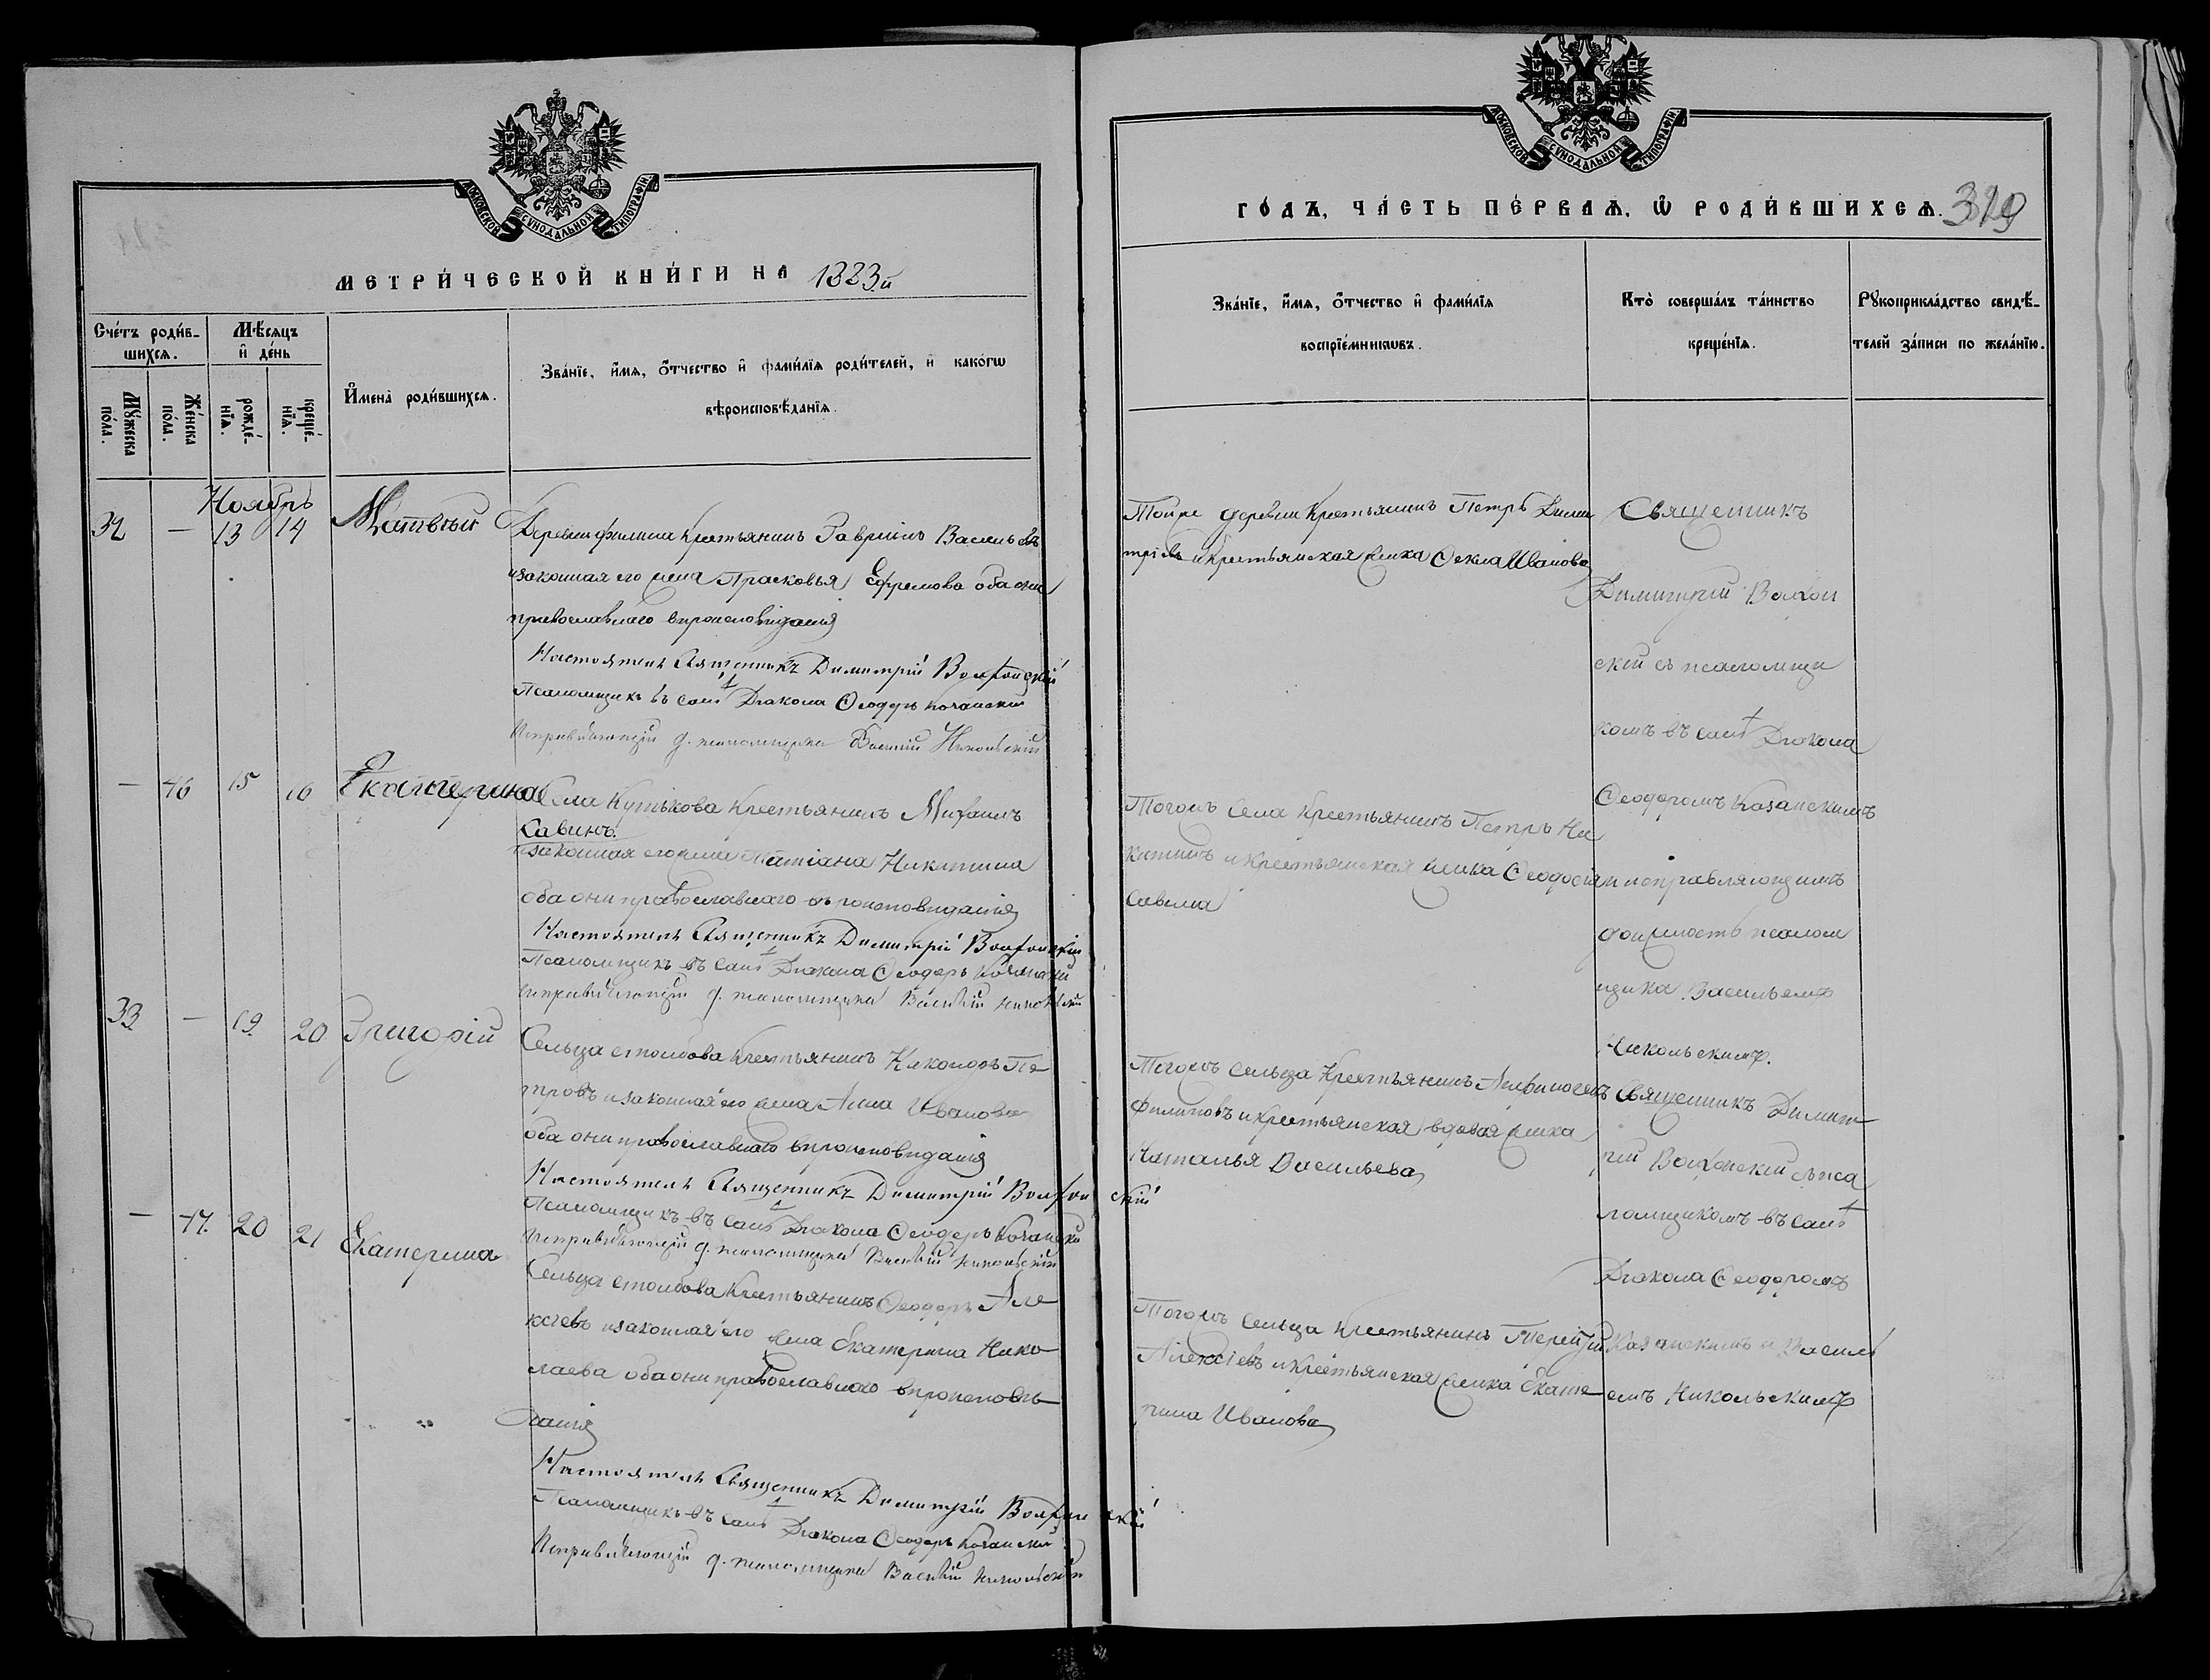 МОСКОВСКОЙ СѴНОДАЛЬНОЙ ТИПОГРАФІИ
МЕТРИ́ЧЕСКОЙ КНИ́ГИ НА 1883й
Сче́тъ роди́в-
шихсѧ.
Мѣ́сѧцъ
и҆ де́нь
Мꙋ́жеска
по́ла.
Же́нска
по́ла.
рожде́-
нїѧ.
креще́-
нїѧ.
И҆мена̀ роди́вшихсѧ.
Зва́нїе, и҆́мѧ, ѻ҆́тчество и҆ фами́лїѧ роди́телей, и҆ како́гѡ
вѣроисповѣ́данїѧ.
Ноябрь
32 — 13 14 Матвѣй
Деревни Филина крестьянинъ Гавріилъ Васильевъ
и законная его жена Прасковья Ефремова оба они
православнаго вѣроисповѣданія
Настоятель Священникъ Димитрій Волхонскій
Псаломщикъ въ санѣ Діакона Ѳеодоръ Казанскій
Исправляющій д. псаломщика Василій Никольскій
— 46 15 16 Екатерина
Села Кутькова крестьянинъ Михаилъ
Савинъ
и законная его жена Татіана Никитина
оба они православнаго вѣроисповѣданія
Настоятель Священникъ Димитрій Волхонскій
Псаломщикъ въ санѣ Діакона Ѳеодоръ Казанскій
Исправляющій д. псаломщика Василій Никольскій
33 — 19 20 Григорій
Сельца Столбова крестьянинъ Никоноръ Пе
тровъ и законная его жена Анна Иванова
оба они православнаго вѣроисповѣданія
Настоятель Священникъ Димитрій Волхонскій
Псаломщикъ въ санѣ Діакона Ѳеодоръ Казанскій
Исправляющій д. псаломщика Василій Никольскій
— 47 20 21 Екатерина
Сельца Столбова крестьянинъ Ѳеодоръ Але
ксѣевъ и законная его жена Екатерина Нико
лаева оба они православнаго вѣроисповѣ
данія
Настоятель Священникъ Димитрій Волхонскій
Псаломщикъ въ санѣ Діакона Ѳеодоръ Казанскій
Исправляющій д. псаломщика Василій Никольскій
МОСКОВСКОЙ СѴНОДАЛЬНОЙ ТИПОГРАФІИ
ГО́ДЪ, ЧА́СТЬ ПЕ́РВАѦ, Ѡ҆ РОДИ́ВШИХСѦ. 319
Зва́нїе, и҆́мѧ, ѻ҆́тчество и҆ фами́лїѧ
воспрїе́мникѡвъ.
Кто̀ соверша́лъ та́инство
креще́нїѧ.
Рꙋкоприкла́дство свидѣ́-
телей за́писи по жела́нїю.
Тойже деревни крестьянинъ Петръ Дими
тріевъ и крестьянская женка Ѳекла Иванова
Тогожъ села крестьянинъ Петръ Ни
китинъ и крестьянская женка Ѳеодосія
Савина
Тогожъ сельца крестьянинъ Анфиногенъ
Филиповъ и крестьянская вдовая женка
Наталья Васильева
Тогожъ сельца крестьянинъ Терентій
Алексѣевъ и крестьянская женка Екате
рина Иванова
Священникъ
Димитрій Волхон
скій съ псаломщи
комъ въ санѣ Діакона
Ѳеодоромъ Казанскимъ
и исправляющимъ
должность псалом
щика Васильемъ
Никольскимъ.
Священникъ Димит
рій Волхонскій съ пса
ломщикомъ въ санѣ
Діакона Ѳеодоромъ
Казанскимъ и Василь
емъ Никольскимъ